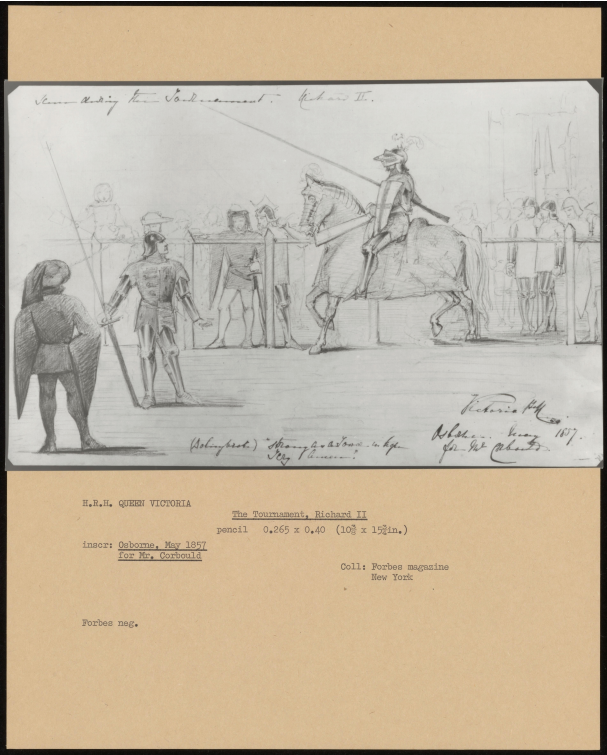 the Tournament. Richard II.
(Bolingbroke.) "Strong as a Tower in hope
I cry Amen!"
Victoria
Osborne. May 1857.
for Mr Corbould
H.R.H. QUEEN VICTORIA
The Tournament, Richard II
pencil 0.265 x 0.40 (10⅜ x 15¾in.)
inscr: Osborne, May 1857
for Mr. Corbould
Coll: Forbes magazine
New York
Forbes neg.